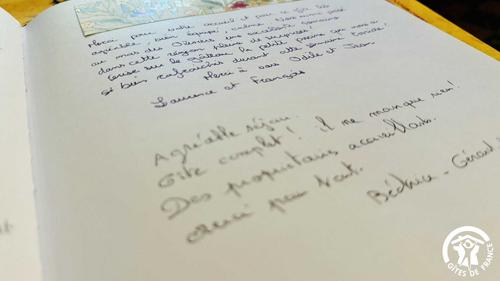 Merci pour votre accueil et pour ce gîte très
agréable, bien équipé, calme. Nous avons passé
au mas des Oliviers une excellente semaine
dans cette région pleine de surprises !
la petite piscine qui nous a
si bien rafraîchis durant cette semaine torride !
Merci à vous Odile et Jean
Laurence et François
Agréable séjour.
Gîte complet ! il ne manque rien !
Des propriétaires accueillants.
Merci pour tout.
Béatrice - Gérard
GÎTES DE FRANCE